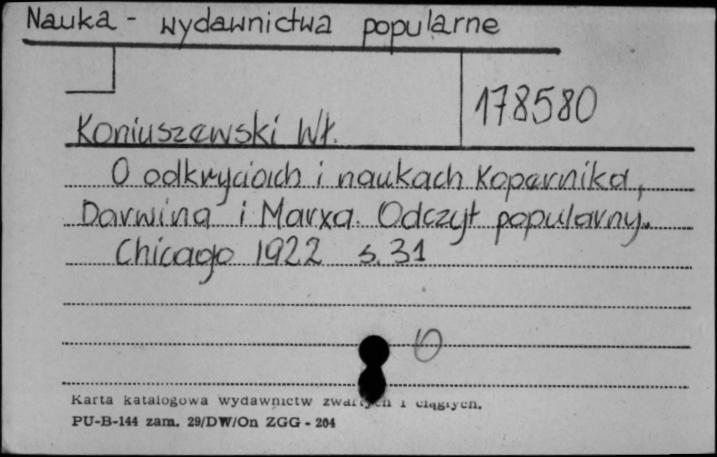 Nauka - wydawnictwa popularne
178580
Koniuszewski Wł.
O odkryciach i naukach Kopernika,
Darwina i Marxa. Odczyt popularny.
Chicago 1922 s. 31
Karta katalogowa wydawnictw zwartych i ciągłych.
PU-B-144 zam. 29/DW/On ZGG - 264